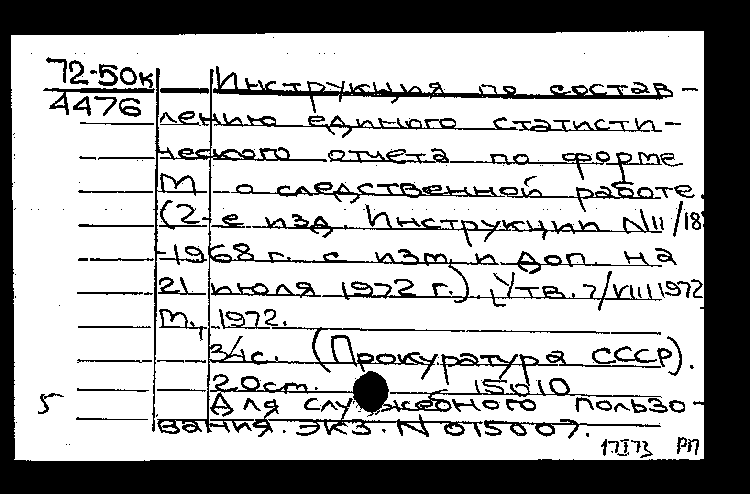 72-50к Инструкция по состав-
4476 лению единого статисти-
ческого отчета по форме
М о следственной работе.
(2-е изд. Инструкции N11/18
-1968 г. с изм. и доп. на
21 июля 1972 г.). [Утв. 7/VIII1972
М., 1972.
34с. (Прокуратура СССР).
20см. 15010
5 Для служебного пользо-
вания. экз. N 015007.
17I73 РП